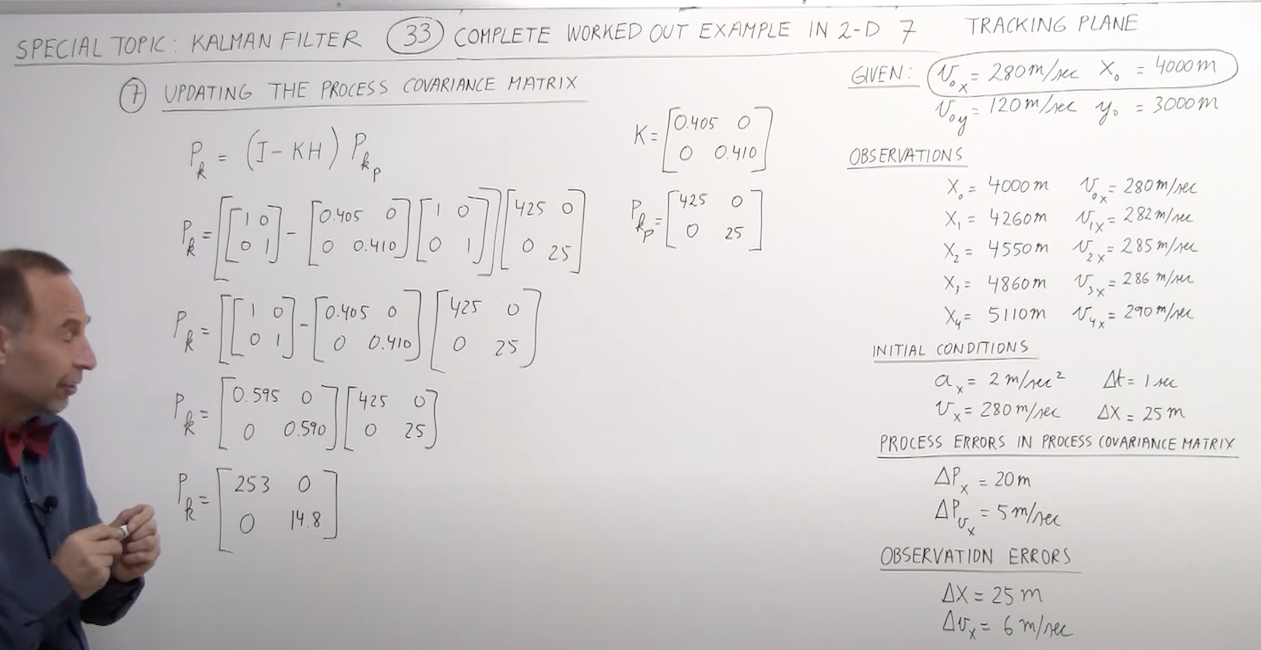 SPECIAL TOPIC: KALMAN FILTER (33) COMPLETE WORKED OUT EXAMPLE IN 2-D 7 TRACKING PLANE
(7) UPDATING THE PROCESS COVARIANCE MATRIX
P_k = (I - KH) P_kp
P_k = [[1 0; 0 1] - [0.405 0; 0 0.410] [1 0; 0 1]] [425 0; 0 25]
P_k = [[1 0; 0 1] - [0.405 0; 0 0.410] [425 0; 0 25]
P_k = [0.595 0; 0 0.590] [425 0; 0 25]
P_k = [253 0; 0 14.8]
K = [0.405 0; 0 0.410]
P_kp = [425 0; 0 25]
GIVEN: v_0x = 280 m/sec X_0 = 4000 m
v_0y = 120 m/sec y_0 = 3000 m
OBSERVATIONS
X_0 = 4000 m v_0x = 280 m/sec
X_1 = 4260 m v_1x = 282 m/sec
X_2 = 4550 m v_2x = 285 m/sec
X_3 = 4860 m v_3x = 286 m/sec
X_4 = 5110 m v_4x = 290 m/sec
INITIAL CONDITIONS
a_x = 2 m/sec² Δt = 1 sec
v_x = 280 m/sec ΔX = 25 m
PROCESS ERRORS IN PROCESS COVARIANCE MATRIX
ΔP_x = 20 m
ΔP_vx = 5 m/sec
OBSERVATION ERRORS
ΔX = 25 m
Δv_x = 6 m/sec